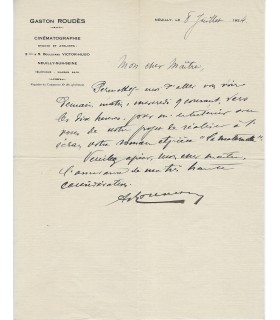 GASTON ROUDÈS
CINÉMATOGRAPHIE
NEUILLY-SUR-SEINE
NEUILLY, LE 8 Juillet 1924
Mon cher Maître,
Permettez moi d'aller vous voir
demain matin, mercredi 9 courant, vers
les dix heures, pour m'entretenir avec
vous de notre projet de réaliser à l'
écran votre roman
Veuillez agréer, mon cher maître,
l'assurance de ma très haute
considération.